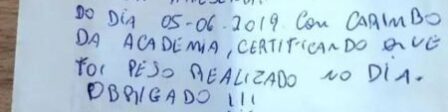 DO DIA 05-06-2019 COM CARIMBO
DA ACADEMIA, CERTIFICANDO QUE
FOI PESO REALIZADO NO DIA.
OBRIGADO !!!